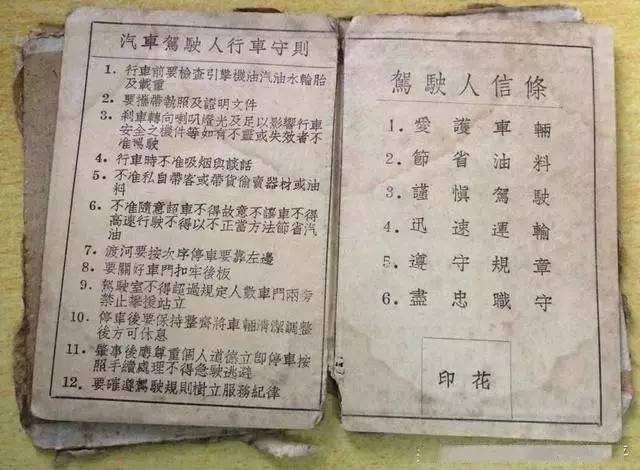 汽車駕駛人行車守則
1. 行車前要檢查引擎機油汽油水輪胎
及載重
2. 要攜帶執照及證明文件
3. 刹車轉向喇叭燈光及足以影響行車
安全之機件等如有不靈或失效者不
准駕駛
4. 行車時不准吸烟與談話
5. 不准私自帶客或帶貨偷賣器材或油
料
6. 不准隨意超車不得故意不讓車不得
高速行駛不得以不正當方法節省汽
油
7. 渡河要按次序停車要靠左邊
8. 要關好車門扣牢後板
9. 駕駛室不得超過規定人數車門兩旁
禁止攀援站立
10. 停車後要保持整齊將車輛清潔調整
後方可休息
11. 肇事後應尊重個人道德立即停車按
照手續處理不得急駛逃避
12. 要確遵駕駛規則樹立服務紀律
駕駛人信條
1. 愛護車輛
2. 節省油料
3. 謹慎駕駛
4. 迅速運輸
5. 遵守規章
6. 盡忠職守
印花